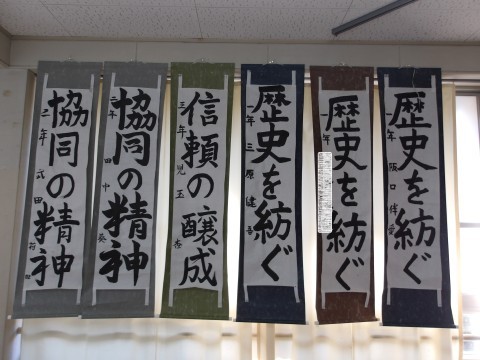 歴史を紡ぐ
一年 阪口
歴史を紡ぐ
一年
歴史を紡ぐ
一年 三原健吾
信頼の醸成
三年 児玉杏
協同の精神
田中葵
協同の精神
二年 武田